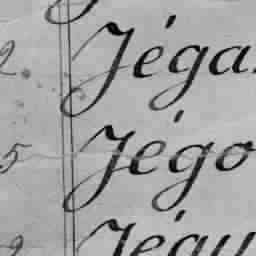 2 Jéga
5 Jégo
2 Jégu